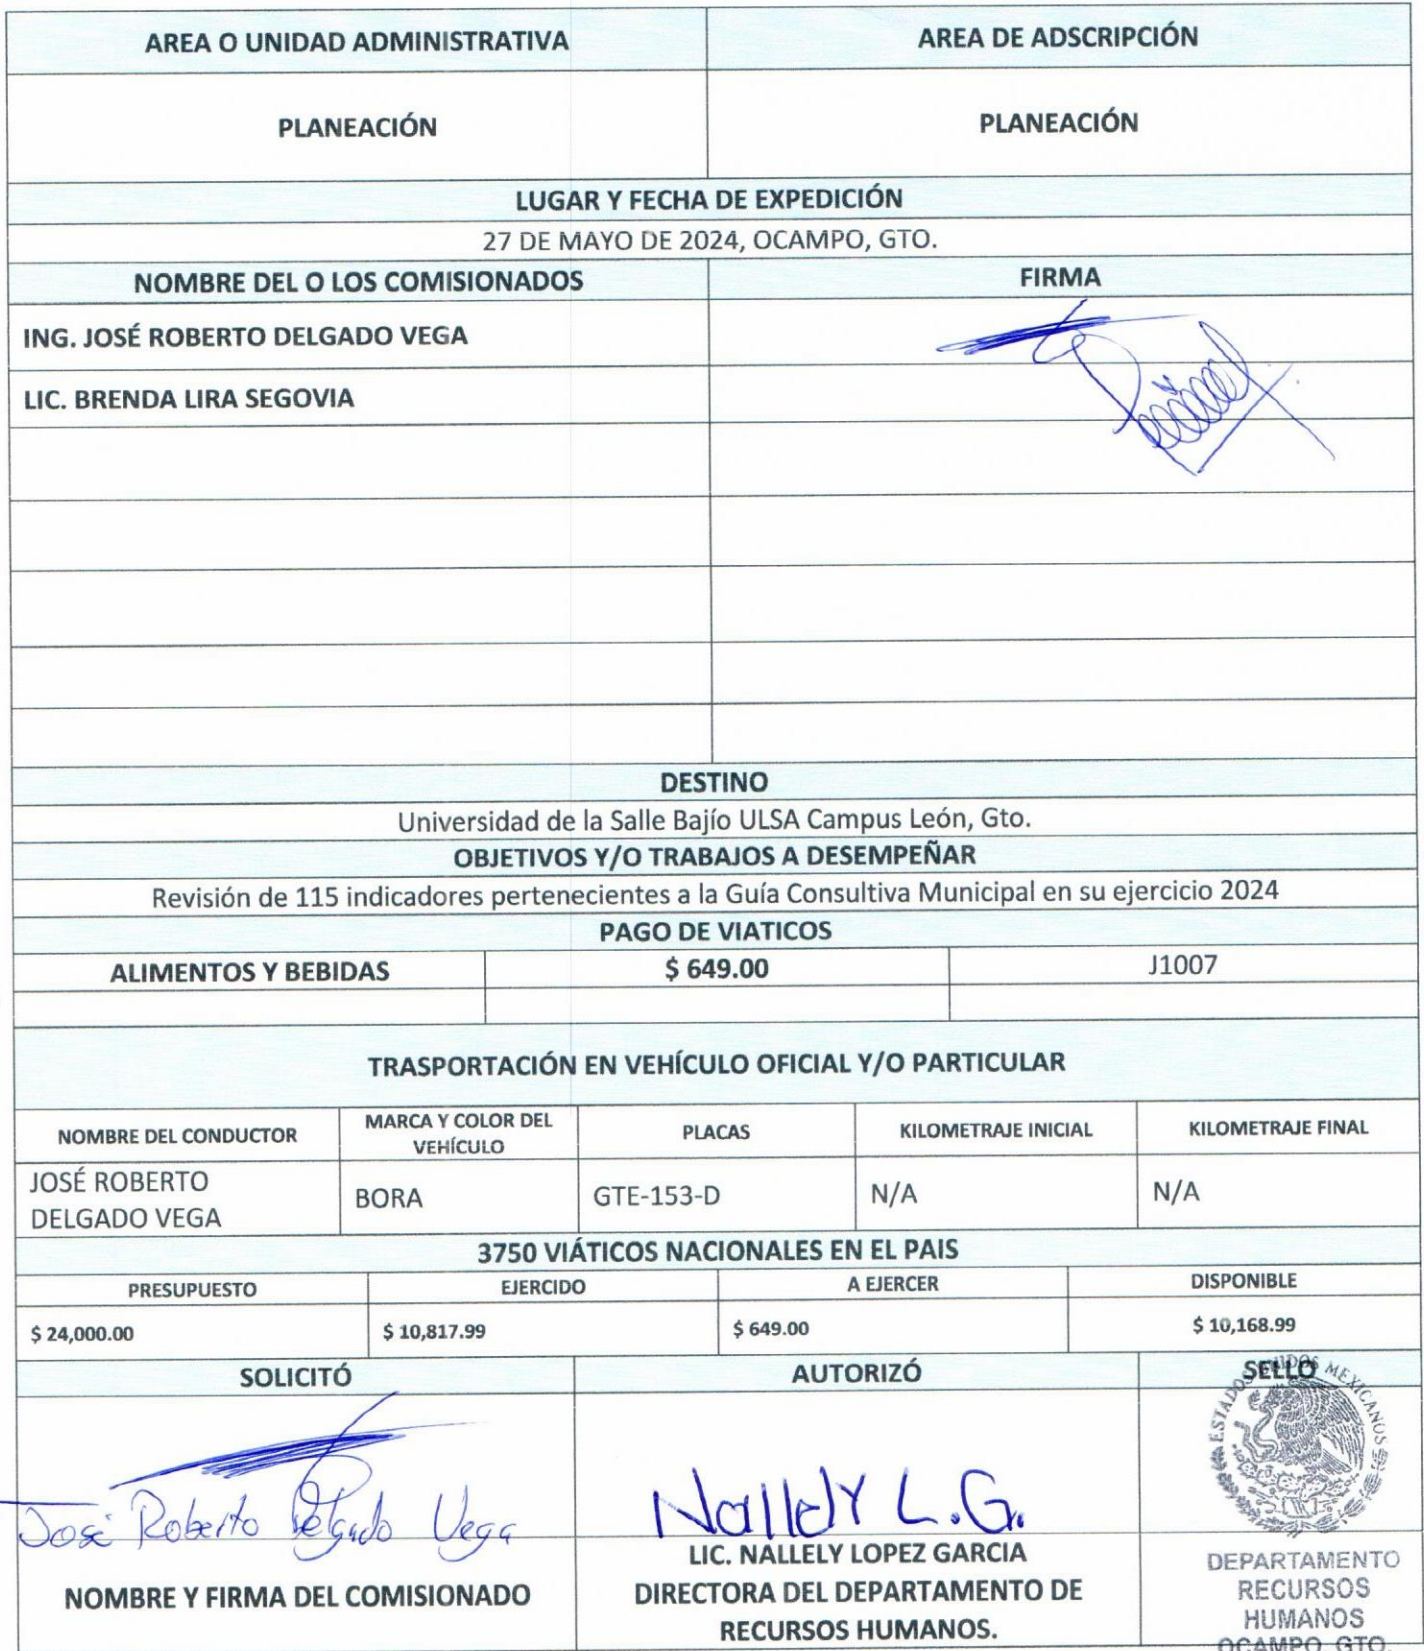 AREA O UNIDAD ADMINISTRATIVA AREA DE ADSCRIPCIÓN
PLANEACIÓN PLANEACIÓN
LUGAR Y FECHA DE EXPEDICIÓN
27 DE MAYO DE 2024, OCAMPO, GTO.
NOMBRE DEL O LOS COMISIONADOS FIRMA
ING. JOSÉ ROBERTO DELGADO VEGA
LIC. BRENDA LIRA SEGOVIA
DESTINO
Universidad de la Salle Bajío ULSA Campus León, Gto.
OBJETIVOS Y/O TRABAJOS A DESEMPEÑAR
Revisión de 115 indicadores pertenecientes a la Guía Consultiva Municipal en su ejercicio 2024
PAGO DE VIATICOS
ALIMENTOS Y BEBIDAS $ 649.00 J1007
TRASPORTACIÓN EN VEHÍCULO OFICIAL Y/O PARTICULAR
NOMBRE DEL CONDUCTOR MARCA Y COLOR DEL VEHÍCULO PLACAS KILOMETRAJE INICIAL KILOMETRAJE FINAL
JOSÉ ROBERTO DELGADO VEGA BORA GTE-153-D N/A N/A
3750 VIÁTICOS NACIONALES EN EL PAIS
PRESUPUESTO EJERCIDO A EJERCER DISPONIBLE
$ 24,000.00 $ 10,817.99 $ 649.00 $ 10,168.99
SOLICITÓ AUTORIZÓ SELLO
ESTADOS UNIDOS MEXICANOS
José Roberto Delgado Vega
Nallely L.G.
NOMBRE Y FIRMA DEL COMISIONADO
LIC. NALLELY LOPEZ GARCIA
DIRECTORA DEL DEPARTAMENTO DE
RECURSOS HUMANOS.
DEPARTAMENTO
RECURSOS
HUMANOS
OCAMPO, GTO.